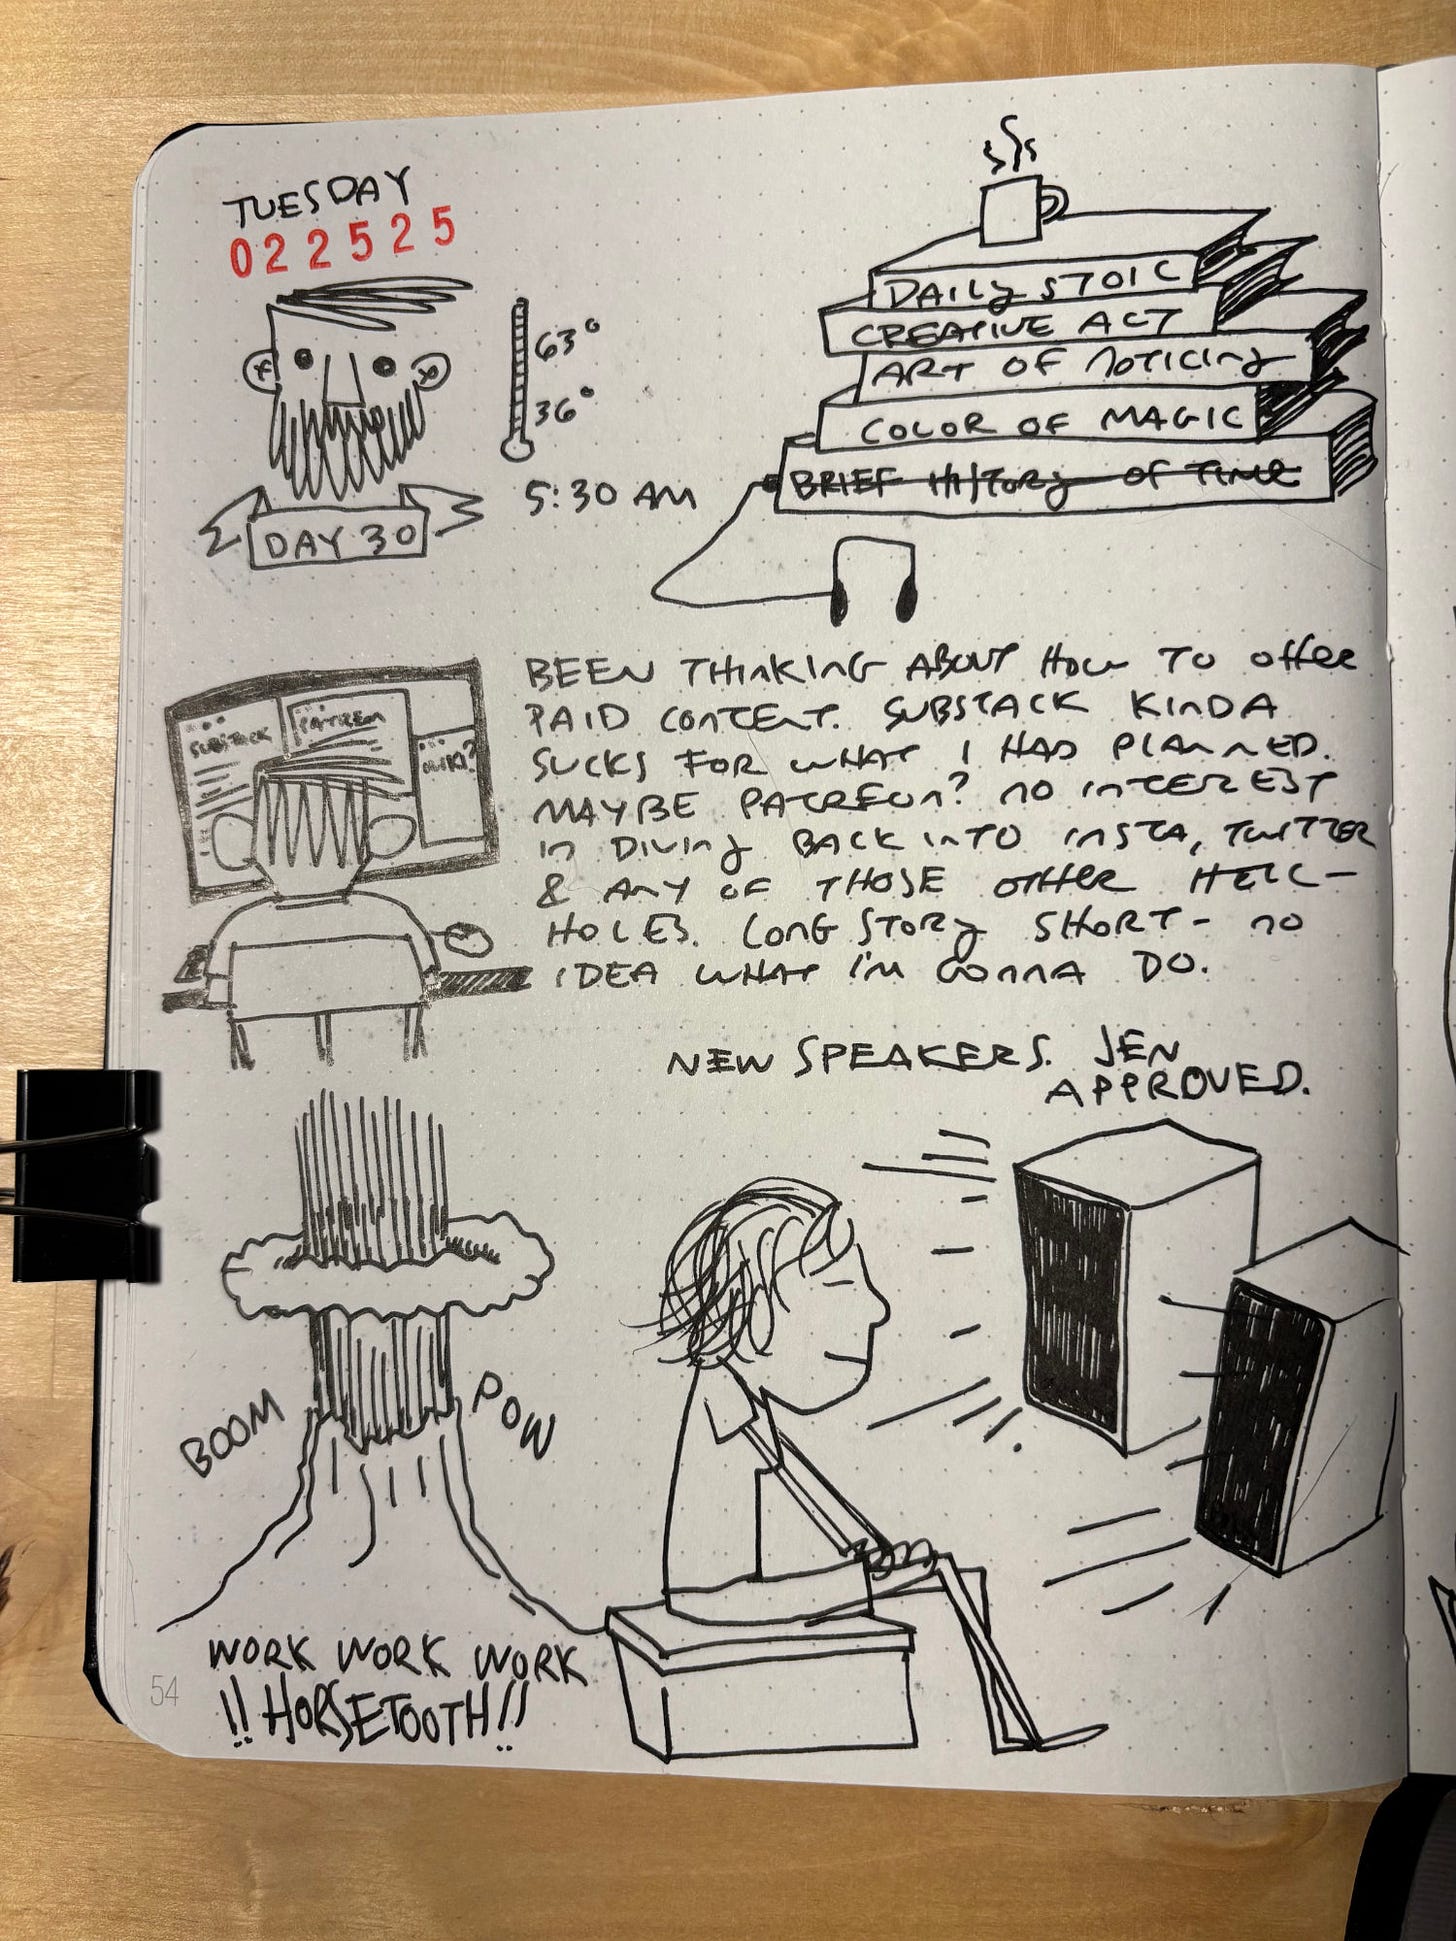 TUESDAY
022525
63°
36°
5:30 AM
DAY 30
DAILY STOIC
CREATIVE ACT
ART OF NOTICING
COLOR OF MAGIC
BRIEF HISTORY OF TIME
SUBSTACK
PATREON
WIKI?
BEEN THINKING ABOUT HOW TO OFFER
PAID CONTENT. SUBSTACK KINDA
SUCKS FOR WHAT I HAD PLANNED.
MAYBE PATREON? NO INTEREST
IN DIVING BACK INTO INSTA, TWITTER
& ANY OF THOSE OTHER HELL-
HOLES. LONG STORY SHORT - NO
IDEA WHAT I'M GONNA DO.
NEW SPEAKERS. JEN
APPROVED.
BOOM
POW
WORK WORK WORK
!! HORSETOOTH!!
54